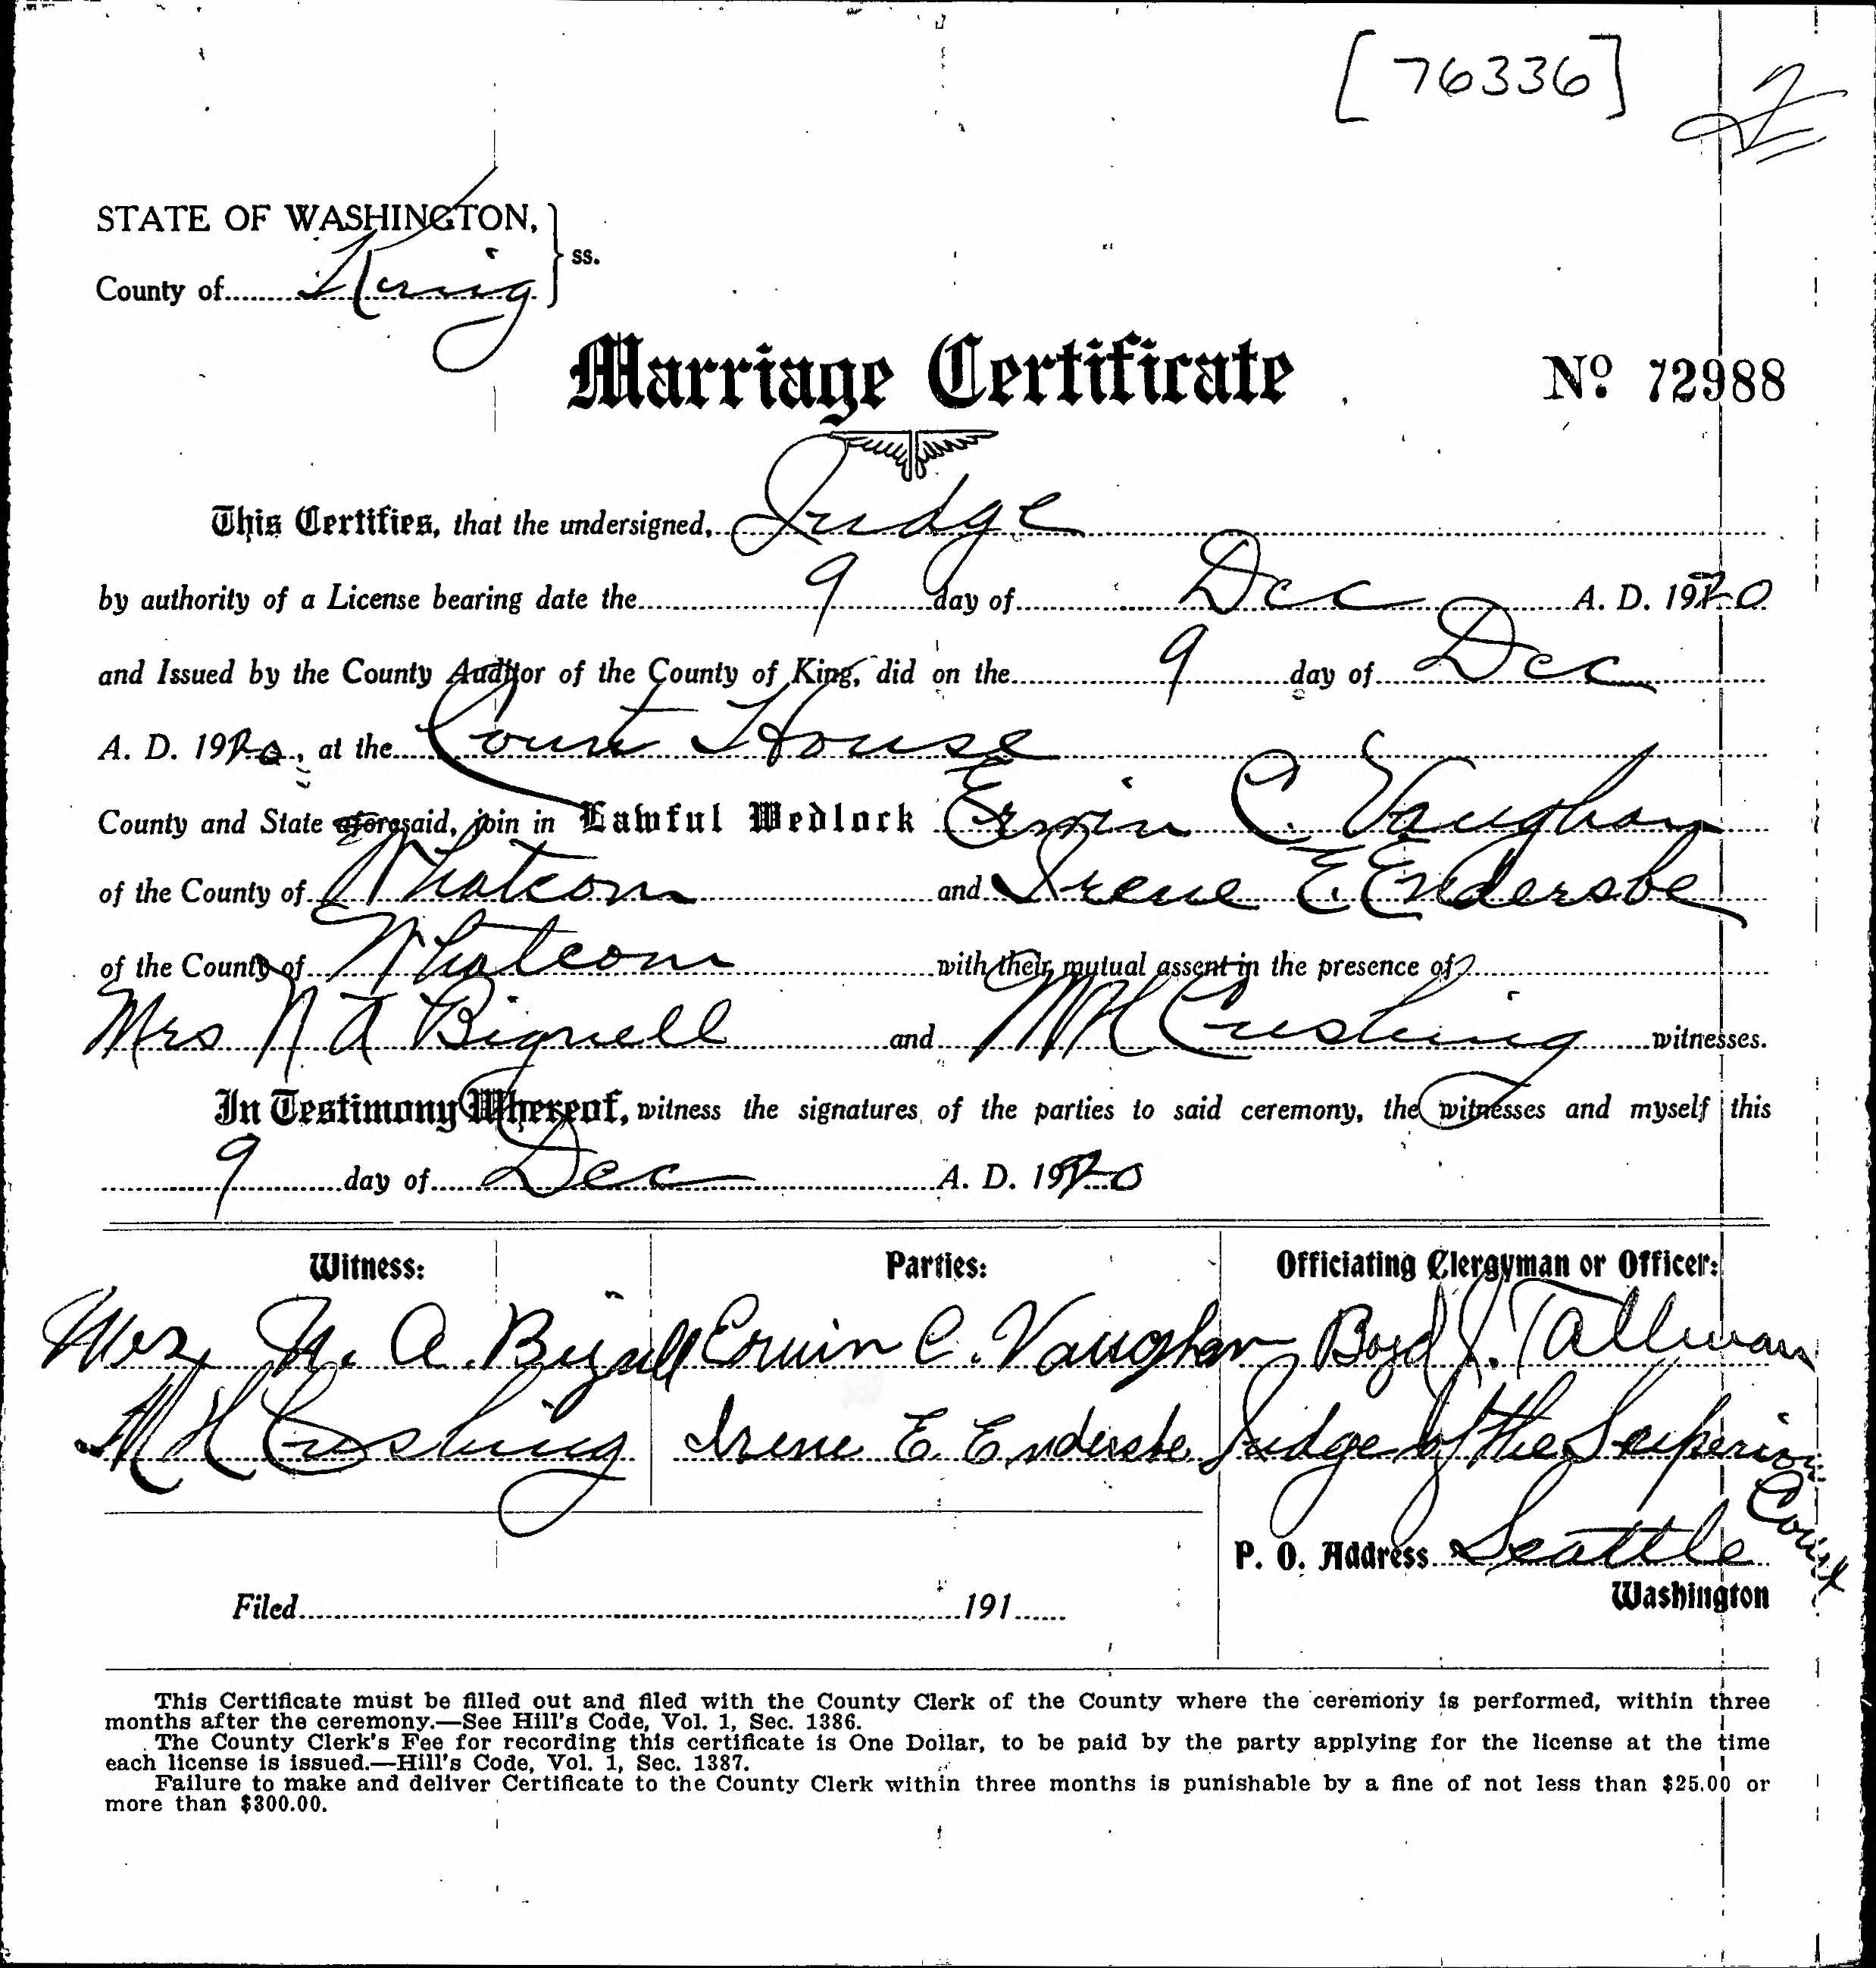 [76336]
STATE OF WASHINGTON,
County of King ss.
Marriage Certificate No. 72988
This Certifies, that the undersigned, Judge
by authority of a License bearing date the 9 day of Dec A. D. 1920
and Issued by the County Auditor of the County of King, did on the 9 day of Dec
A. D. 1920, at the Court House
County and State aforesaid, join in Lawful Wedlock Erwin C. Vaughan
of the County of Whatcom and Irene E. Endersbe
of the County of Whatcom with their mutual assent in the presence of
Mrs N A Bignell and M H Cushing witnesses.
In Testimony Whereof, witness the signatures of the parties to said ceremony, the witnesses and myself this
9 day of Dec A. D. 1920
Witness: Parties: Officiating Clergyman or Officer:
Mrs. N. A. Bignell Erwin C. Vaughan Boyd J. Tallman
M H Cushing Irene E. Endersbe Judge of the Superior Court
P. O. Address Seattle
Washington
Filed 191
This Certificate must be filled out and filed with the County Clerk of the County where the ceremony is performed, within three
months after the ceremony.—See Hill's Code, Vol. 1, Sec. 1386.
The County Clerk's Fee for recording this certificate is One Dollar, to be paid by the party applying for the license at the time
each license is issued.—Hill's Code, Vol. 1, Sec. 1387.
Failure to make and deliver Certificate to the County Clerk within three months is punishable by a fine of not less than $25.00 or
more than $300.00.